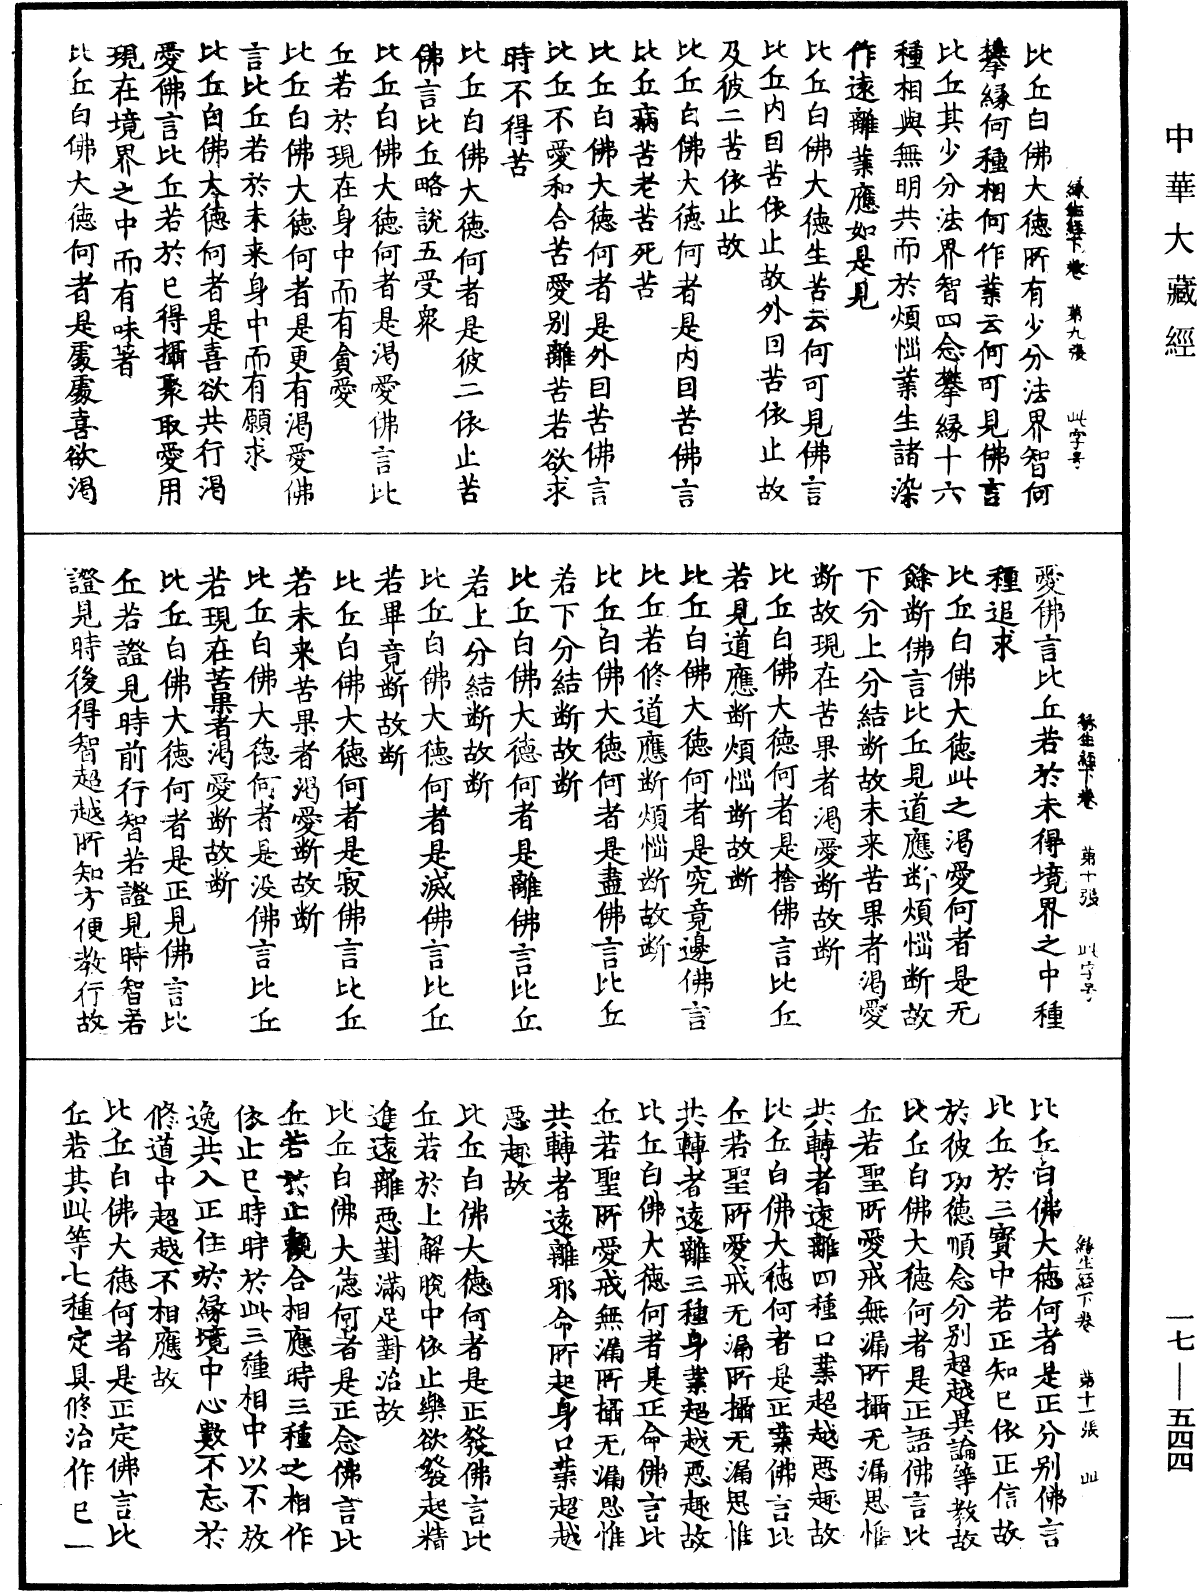 中華大藏經
緣生經下卷　第九張　此字号
比丘白佛大德所有少分法界智何
攀緣何種相何作業云何可見佛言
比丘其少分法界智四念攀緣十六
種相與無明共而於煩惱業生諸染
作遠離業應如是見
比丘白佛大德生苦云何可見佛言
比丘內因苦依止故外因苦依止故
及彼二苦依止故
比丘白佛大德何者是內因苦佛言
比丘病苦老苦死苦
比丘白佛大德何者是外因苦佛言
比丘不愛和合苦愛別離苦若欲求
時不得苦
比丘白佛大德何者是彼二依止苦
佛言比丘略說五受眾
比丘白佛大德何者是渴愛佛言比
丘若於現在身中而有貪愛
比丘白佛大德何者是更有渴愛佛
言比丘若於未來身中而有願求
比丘白佛大德何者是喜欲共行渴
愛佛言比丘若於已得攝聚取愛用
現在境界之中而有味著
比丘白佛大德何者是處處喜欲渴
緣生經下卷　第十張　此字号
愛佛言比丘若於未得境界之中種
種追求
比丘白佛大德此之渴愛何者是无
餘斷佛言比丘見道應斷煩惱斷故
下分上分結斷故未來苦果者渴愛
斷故現在苦果者渴愛斷故斷
比丘白佛大德何者是捨佛言比丘
若見道應斷煩惱斷故斷
比丘白佛大德何者是究竟邊佛言
比丘若修道應斷煩惱斷故斷
比丘白佛大德何者是盡佛言比丘
若下分結斷故斷
比丘白佛大德何者是離佛言比丘
若上分結斷故斷
比丘白佛大德何者是滅佛言比丘
若畢竟斷故斷
比丘白佛大德何者是寂佛言比丘
若未來苦果者渴愛斷故斷
比丘白佛大德何者是沒佛言比丘
若現在苦果者渴愛斷故斷
比丘白佛大德何者是正見佛言比
丘若證見時前行智若證見時智若
證見時後得智超越所知方便教行故
緣生經下卷　第十一張　此
比丘白佛大德何者是正分別佛言
比丘於三寶中若正知已依正信故
於彼功德順念分別超越異論等教故
比丘白佛大德何者是正語佛言比
丘若聖所愛戒無漏所攝无漏思惟
共轉者遠離四種口業超越惡趣故
比丘白佛大德何者是正業佛言比
丘若聖所愛戒无漏所攝无漏思惟
共轉者遠離三種身業超越惡趣故
比丘白佛大德何者是正命佛言比
丘若聖所愛戒無漏所攝无漏思惟
共轉者遠離邪命所起身口業超越
惡趣故
比丘白佛大德何者是正發佛言比
丘若於上解脫中依止樂欲發起精
進遠離惡對滿足對治故
比丘白佛大德何者是正念佛言比
丘若於止觀合相應時三種之相作
依止已時時於此三種相中以不放
逸共入正住於緣境中心數不忘於
修道中超越不相應故
比丘白佛大德何者是正定佛言比
丘若其此等七種定具修治作已一
一七—五四四